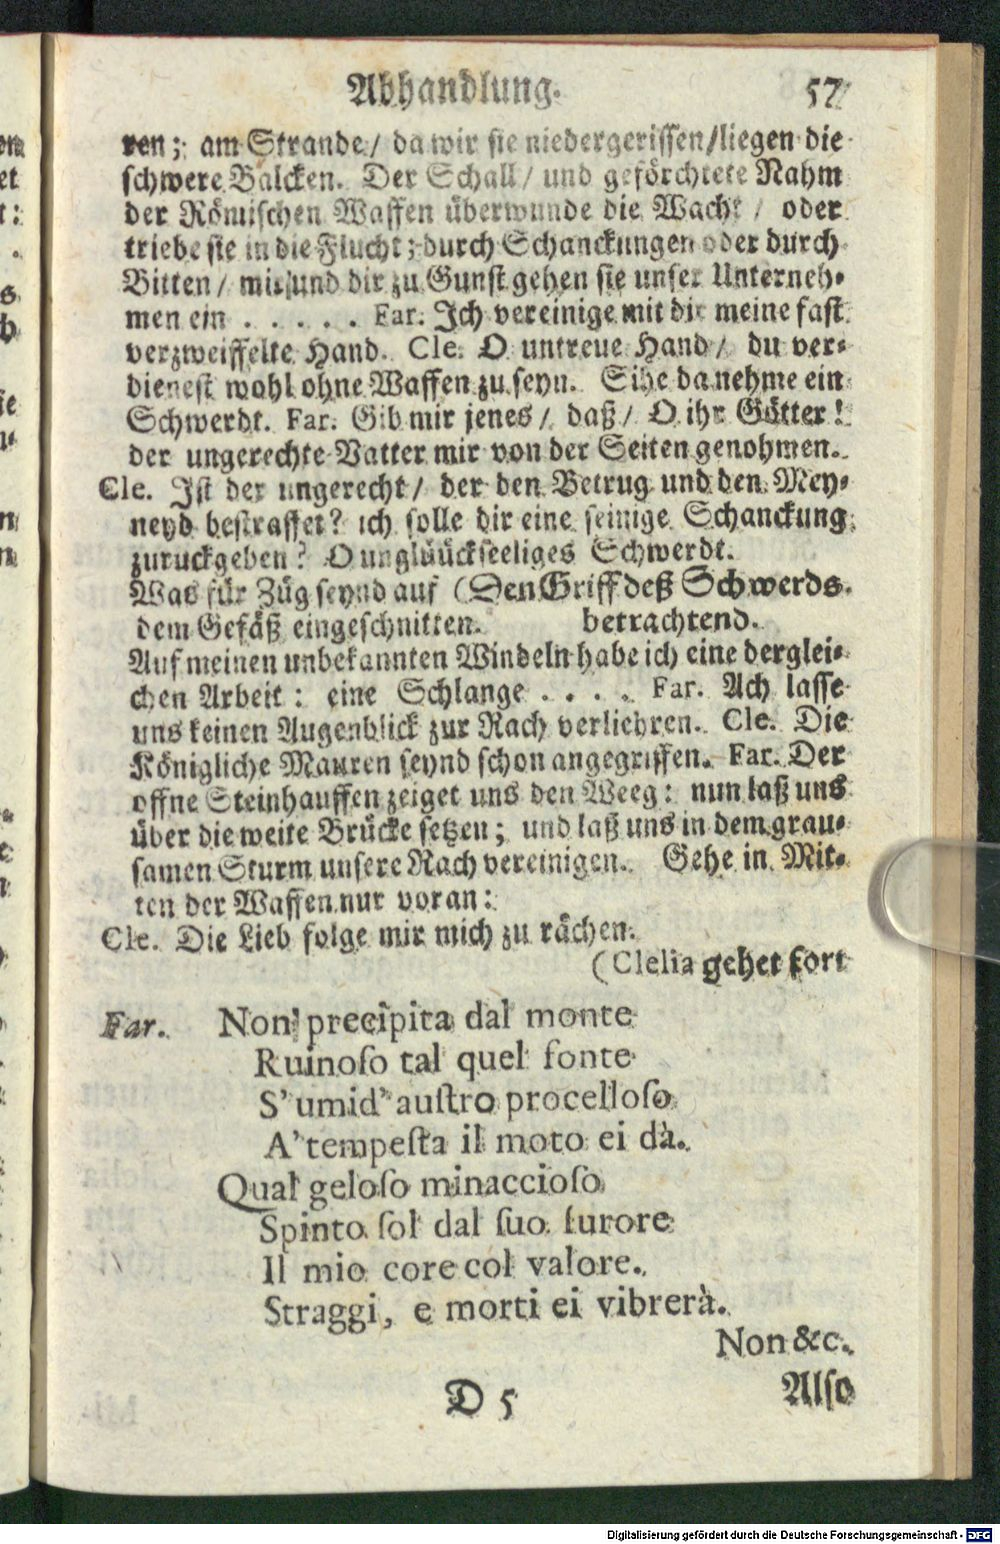 Abhandlung. 57
ren; am Strande/ da wir sie niedergerissen/liegen die
schwere Balcken. Der Schall/ und geförchtete Nahm
der Römischen Waffen überwunde die Wacht/ oder
triebe sie in die Flucht; durch Schanckungen oder durch
Bitten/ mir und dir zu Gunst gehen sie unser Unterneh-
men ein . . . . . Far. Ich vereinige mit dir meine fast
verzweiffelte Hand. Cle. O untreue Hand/ du ver-
dienest wohl ohne Waffen zu seyn. Sihe da nehme ein
Schwerdt. Far. Gib mir jenes/ daß/ O ihr Götter!
der ungerechte Vatter mir von der Seiten genohmen.
Cle. Ist der ungerecht/ der den Betrug und den Mey-
neyd bestraffet? ich solle dir eine seinige Schanckung
zuruckgeben? O unglüückseeliges Schwerdt.
Was für Züg seynd auf (Den Griff deß Schwerds
dem Gefäß eingeschnitten. betrachtend.
Auf meinen unbekannten Windeln habe ich eine derglei-
chen Arbeit: eine Schlange . . . . Far. Ach lasse
uns keinen Augenblick zur Rach verliehren. Cle. Die
Königliche Mauren seynd schon angegriffen. Far. Der
offne Steinhauffen zeiget uns den Weeg: nun laß uns
über die weite Brücke setzen; und laß uns in dem grau-
samen Sturm unsere Rach vereinigen. Gehe in Mit-
ten der Waffen nur voran:
Cle. Die Lieb folge mir mich zu rächen.
(Clelia gehet fort
Far. Non precipita dal monte
Ruinoso tal quel fonte
S' umid' austro procelloso
A' tempesta il moto ei dà.
Qual geloso minaccioso
Spinto sol dal suo furore
Il mio core col valore.
Straggi, e morti ei vibrerà.
Non &c.
D 5 Also
Digitalisierung gefördert durch die Deutsche Forschungsgemeinschaft - DFG